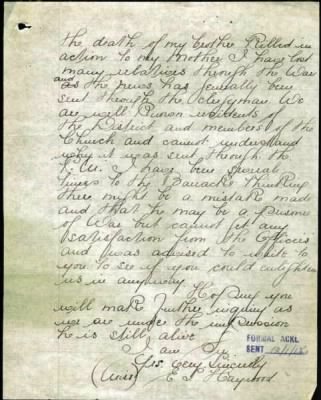 the death of my brother Killed in
action to my Mother I have lost
many relatives through the War
and as the news has generally been
sent through the clergyman We
are well known residents of
the District and members of the
Church and cannot understand
why it was sent through the
I have been several
times to the Barracks thinking
there might be a mistake made
and that he may be a prisoner
of War but cannot get any
satisfaction from the Officers
and was advised to write to
you to see if you could enlighten
us in anyway
Hoping you
will make further inquiry as
we are under the impression
he is still alive
I am Sir
Yrs Very Sincerely
(Miss) E I Haywood
FORMAL ACKL
SENT